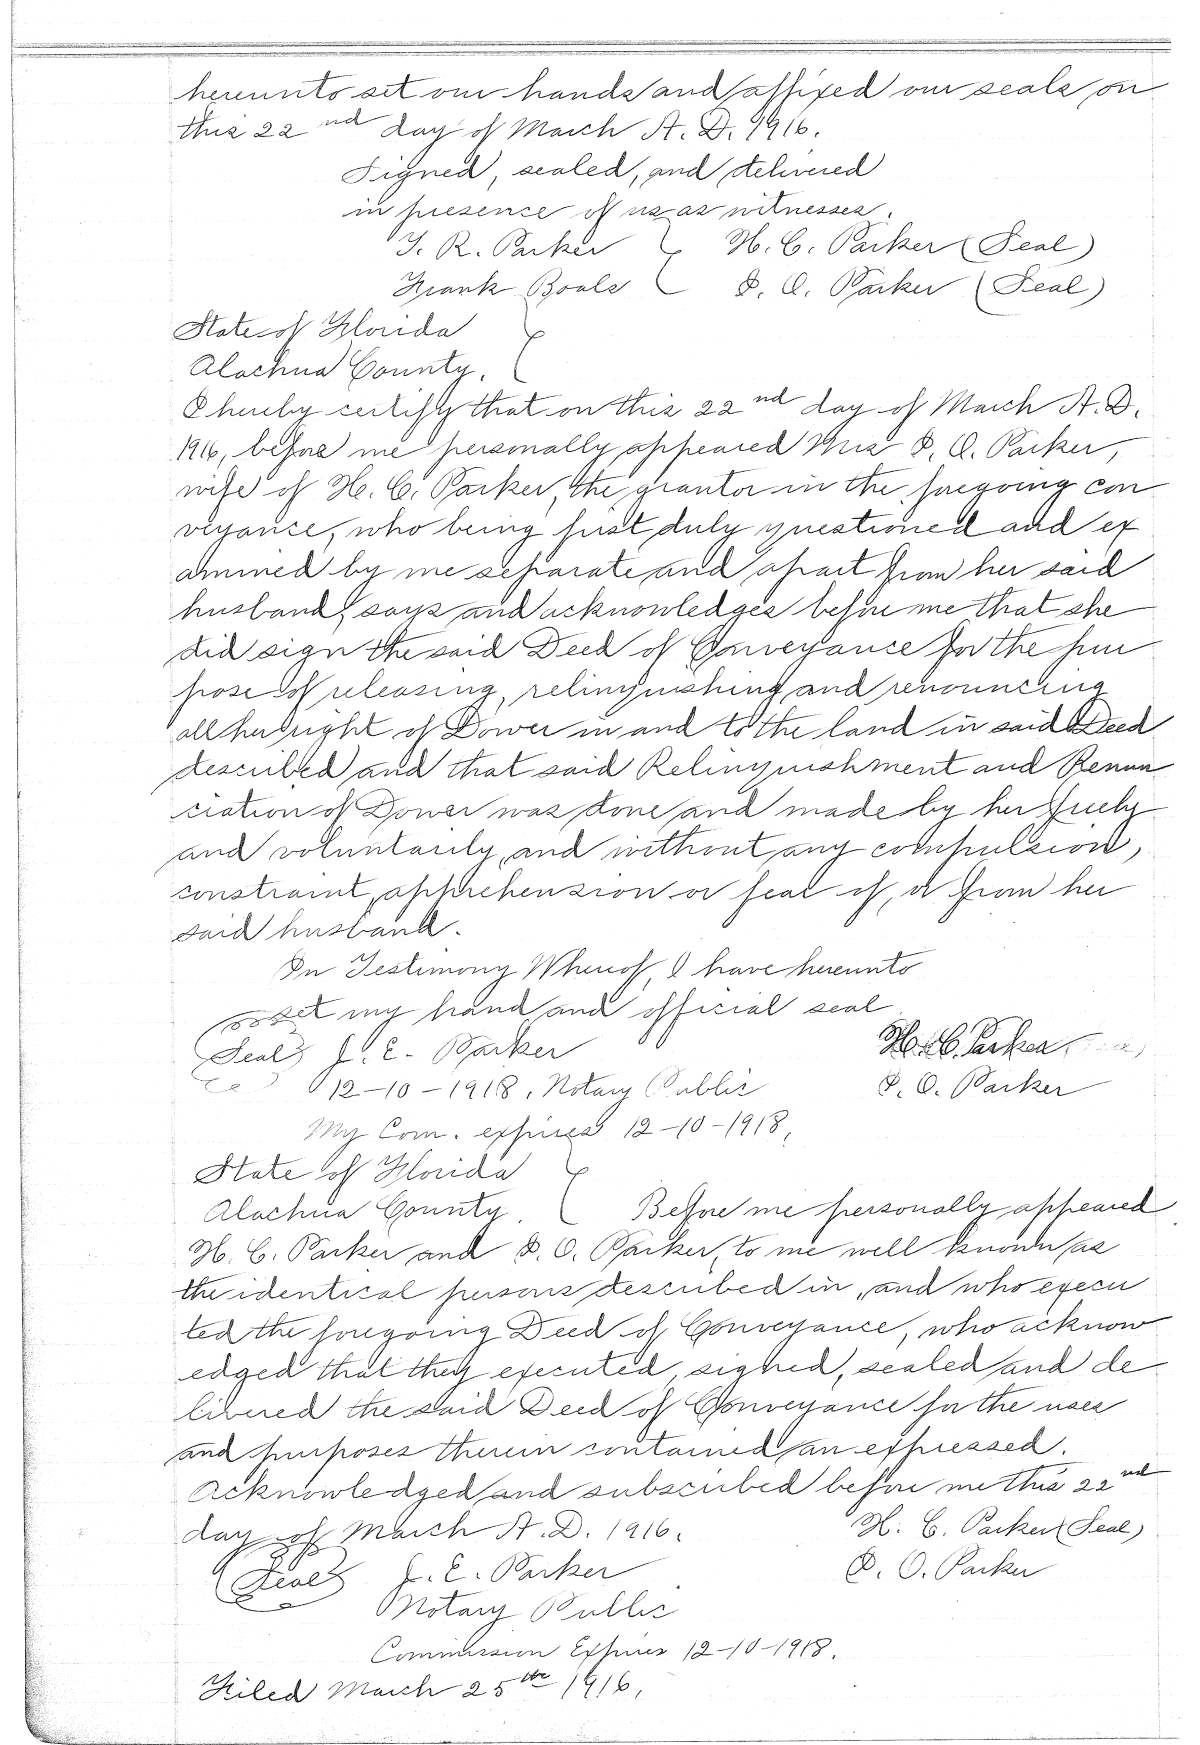 hereunto set our hands and affixed our seals on
this 22nd day of March A. D. 1916.
Signed, sealed, and delivered
in presence of us as witnesses.
T. R. Parker H. C. Parker (Seal)
Frank Boals P. O. Parker (Seal)
State of Florida
Alachua County.
I hereby certify that on this 22nd day of March A. D.
1916, before me personally appeared Mrs P. O. Parker,
wife of H. C. Parker, the grantor in the foregoing con
veyance, who being first duly questioned and ex
amined by me separate and apart from her said
husband, says and acknowledges before me that she
did sign the said Deed of Conveyance for the pur
pose of releasing, relinquishing and renouncing
all her right of Dower in and to the land in said Deed
described and that said Relinquishment and Renun
ciation of Dower was done and made by her freely
and voluntarily, and without any compulsion,
constraint, apprehension or fear of, or from her
said husband.
In Testimony Whereof, I have hereunto
set my hand and official seal
(Seal) J. E. Parker H. C. Parker (Seal)
12-10-1918. Notary Public P. O. Parker
My Com. expires 12-10-1918.
State of Florida
Alachua County. Before me personally appeared
H. C. Parker and P. O. Parker, to me well known as
the identical persons described in, and who execu
ted the foregoing Deed of Conveyance, who acknow
edged that they executed, signed, sealed and de
livered the said Deed of Conveyance for the uses
and purposes therein contained an expressed.
Acknowledged and subscribed before me this 22nd
day of March A. D. 1916. H. C. Parker (Seal)
(Seal) J. E. Parker P. O. Parker
Notary Public
Commission Expires 12-10-1918.
Filed March 25th 1916.